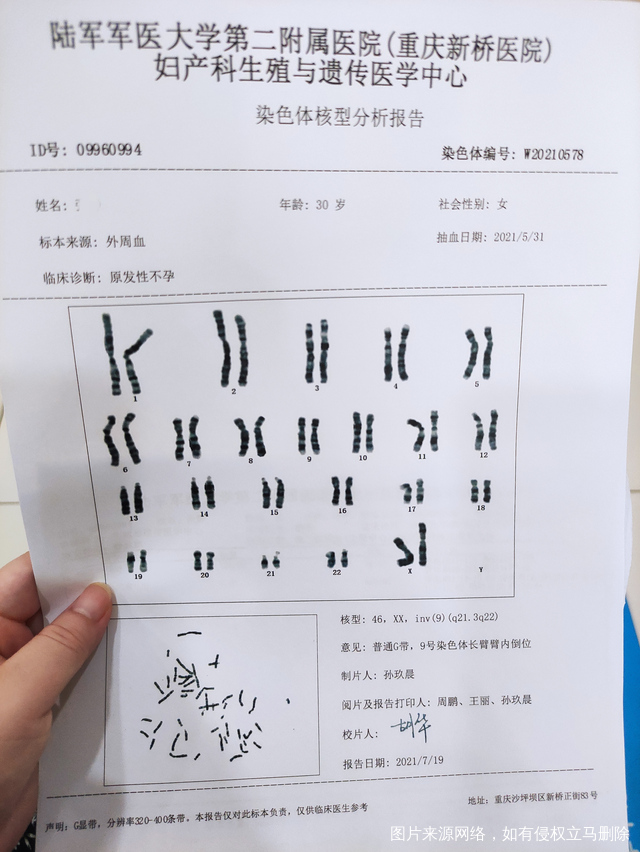 陆军军医大学第二附属医院(重庆新桥医院)
妇产科生殖与遗传医学中心
染色体核型分析报告
ID号: 09960994 染色体编号: W20210578
姓名: 年龄: 30 岁 社会性别: 女
标本来源: 外周血 抽血日期: 2021/5/31
临床诊断: 原发性不孕
1 2 3 4 5
6 7 8 9 10 11 12
13 14 15 16 17 18
19 20 21 22 X Y
核型: 46, XX, inv(9)(q21.3q22)
意见: 普通G带, 9号染色体长臂臂内倒位
制片人: 孙玖晨
阅片及报告打印人: 周鹏、王丽、孙玖晨
校片人:
报告日期: 2021/7/19
声明: G显带, 分辨率320-400条带。本报告仅对此标本负责, 仅供临床医生参考 地址: 重庆沙坪坝区新桥正街83号
图片来源网络，如有侵权立马删除